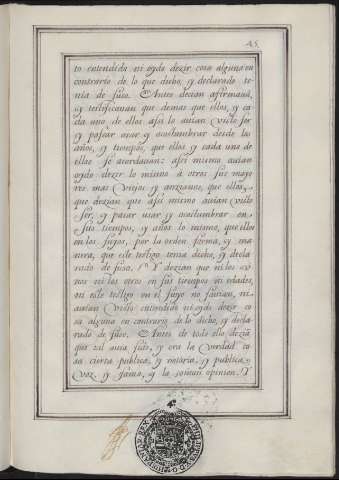 45
to entendido ni oydo dezir cosa alguna en
contrario de lo que dicho, y declarado te
nia de suso. Antes decian afirmaua,
y testificauan que demas que ellos, y ca
da uno de ellos asi lo auian visto ser
y pasar usar y acustumbrar desde los
años, y tiempos, que ellos y cada uno de
ellos se acordauan: asi mismo auian
oydo dezir lo mismo a otros sus mayo
res mas viejos y anzianos, que ellos,
que dezian que asi mismo auian visto
ser, y pasar usar y acustumbrar en
sus tiempos, y años lo mismo, que ellos
en los suyos, por la orden forma, y ma
nera, que este testigo tenia dicho, y decla
rado de suso. Y dezian que ni los o
tros ni los otros en sus tiempos ni edades,
ni este testigo en el suyo no sauian, ni
auian visto entendido ni oydo dezir co
sa alguna en contrario de lo dicho, y decla
rado de suso. Antes de todo ello dezia
que tal auia sido, y era la verdad co
sa cierta publica, y notoria, y publica
voz, y fama, y la comun opinion. Y